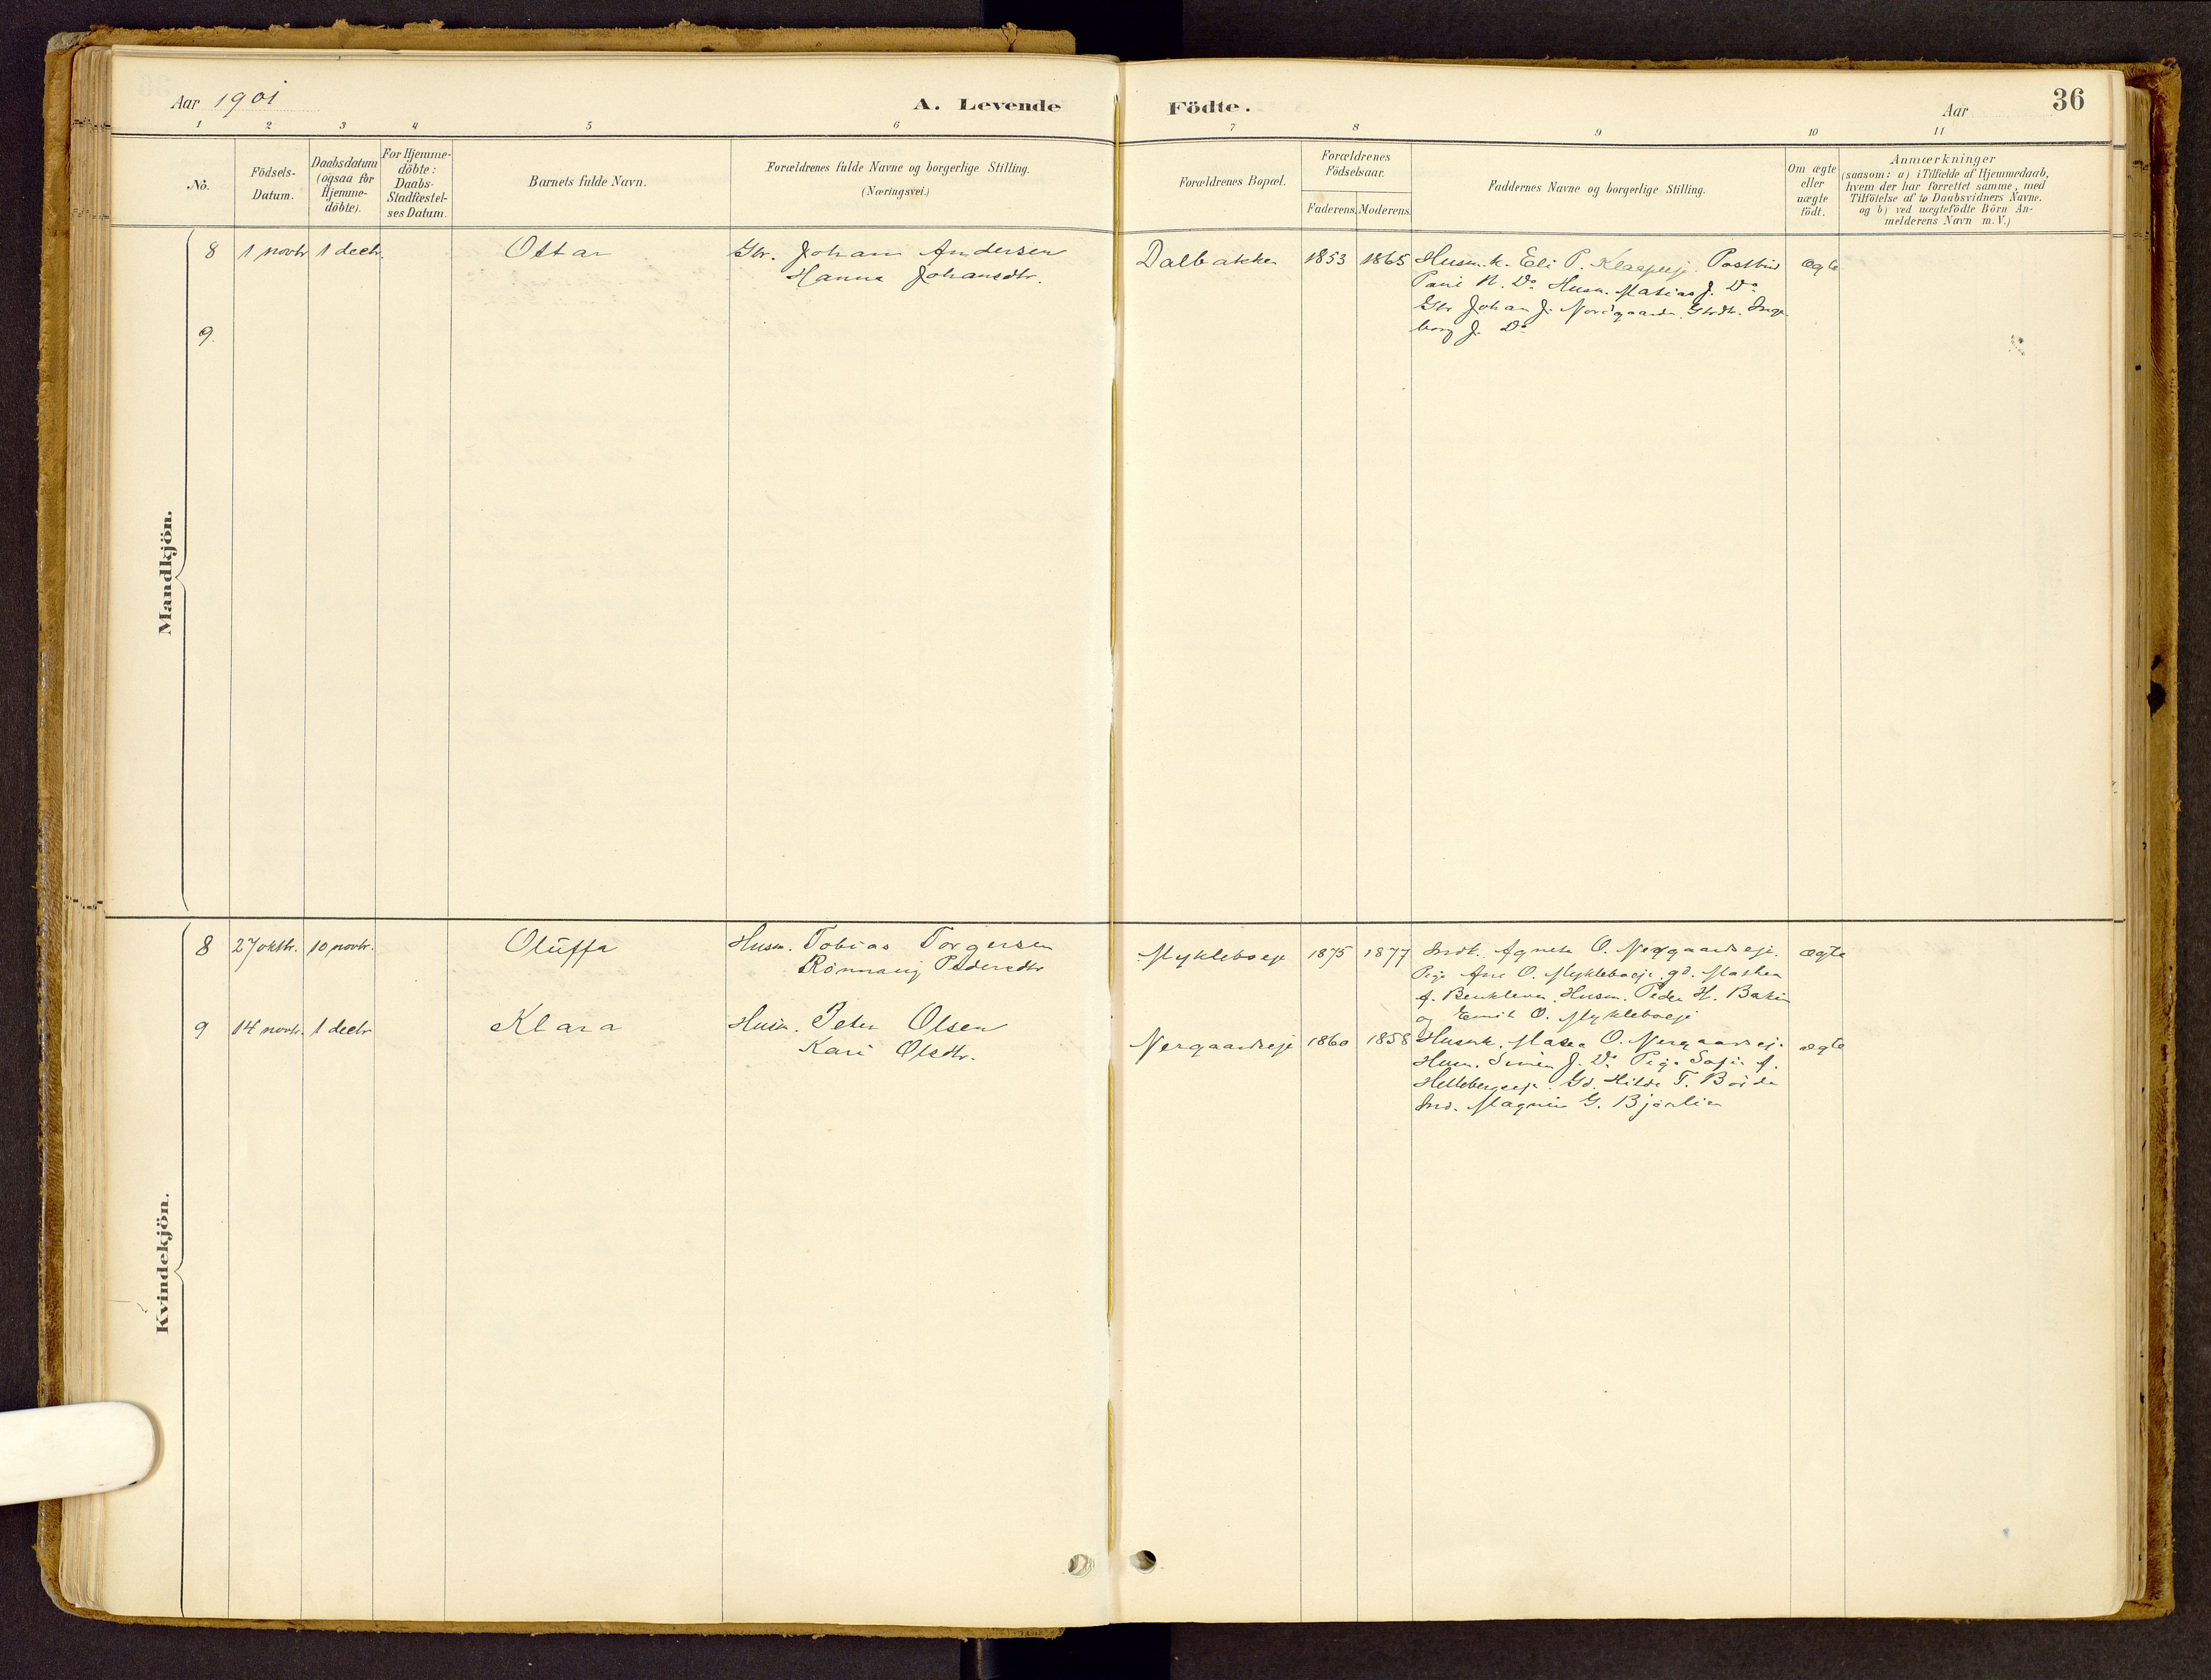 Aar 1901
A. Levende Födte.
Aar
36
1 2 3 4 5 6 7 8 9 10 11
No.
Födsels-
Datum.
Daabsdatum
(ogsaa for
Hjemme-
döbte).
For Hjemme-
döbte:
Daabs-
Stadfæstel-
ses Datum.
Barnets fulde Navn.
Forældrenes fulde Navne og borgerlige Stilling.
(Næringsvei.)
Forældrenes Bopæl.
Forældrenes
Födselsaar.
Faderens. Moderens.
Faddernes Navne og borgerlige Stilling.
Om ægte
eller
uægte
födt.
Anmærkninger
(saasom: a) i Tilfælde af Hjemmedaab,
hvem der har forrettet samme, med
Tilföielse af to Daabsvidners Navne.
og b) ved uægtefödte Börn An-
melderens Navn m. V.)
Mandkjön.
8 1 novbr 1 decbr. Ottar Gbr. Johan Andersen
Hanna Johansdtr.
Dalbakken 1853 1865 Husm.k. Eli P. Postbud ægte
N. Do Husm. Matias J. Do
Gbr Johan J. Nordgaarden. Inge-
borg J. Do
9.
Kvindekjön.
8 27 oktbr. 10 novbr. Oluffa Husm. Tobias Torgersen
Rönnaug Pedersdtr
Mykleboeje 1875 1877 Indk. Agnete O. Nergaardseje. ægte
Pige Ane O. Mykleboeje. gd. Mathea
A. Husm. Peder H. Bakin
og Emil O. Mykleboeje
9 14 novbr. 1 decbr Klara Husm. Peter Olsen
Kari Olsdtr.
Nergaardseje 1860 1858 Husmk. Masea O. Nergaardseje ægte
Husm. Simen J. Do Pige Sofie A.
Hellebergseje. Gd. Hilda T.
Ind. Magnus G. Bjørlien